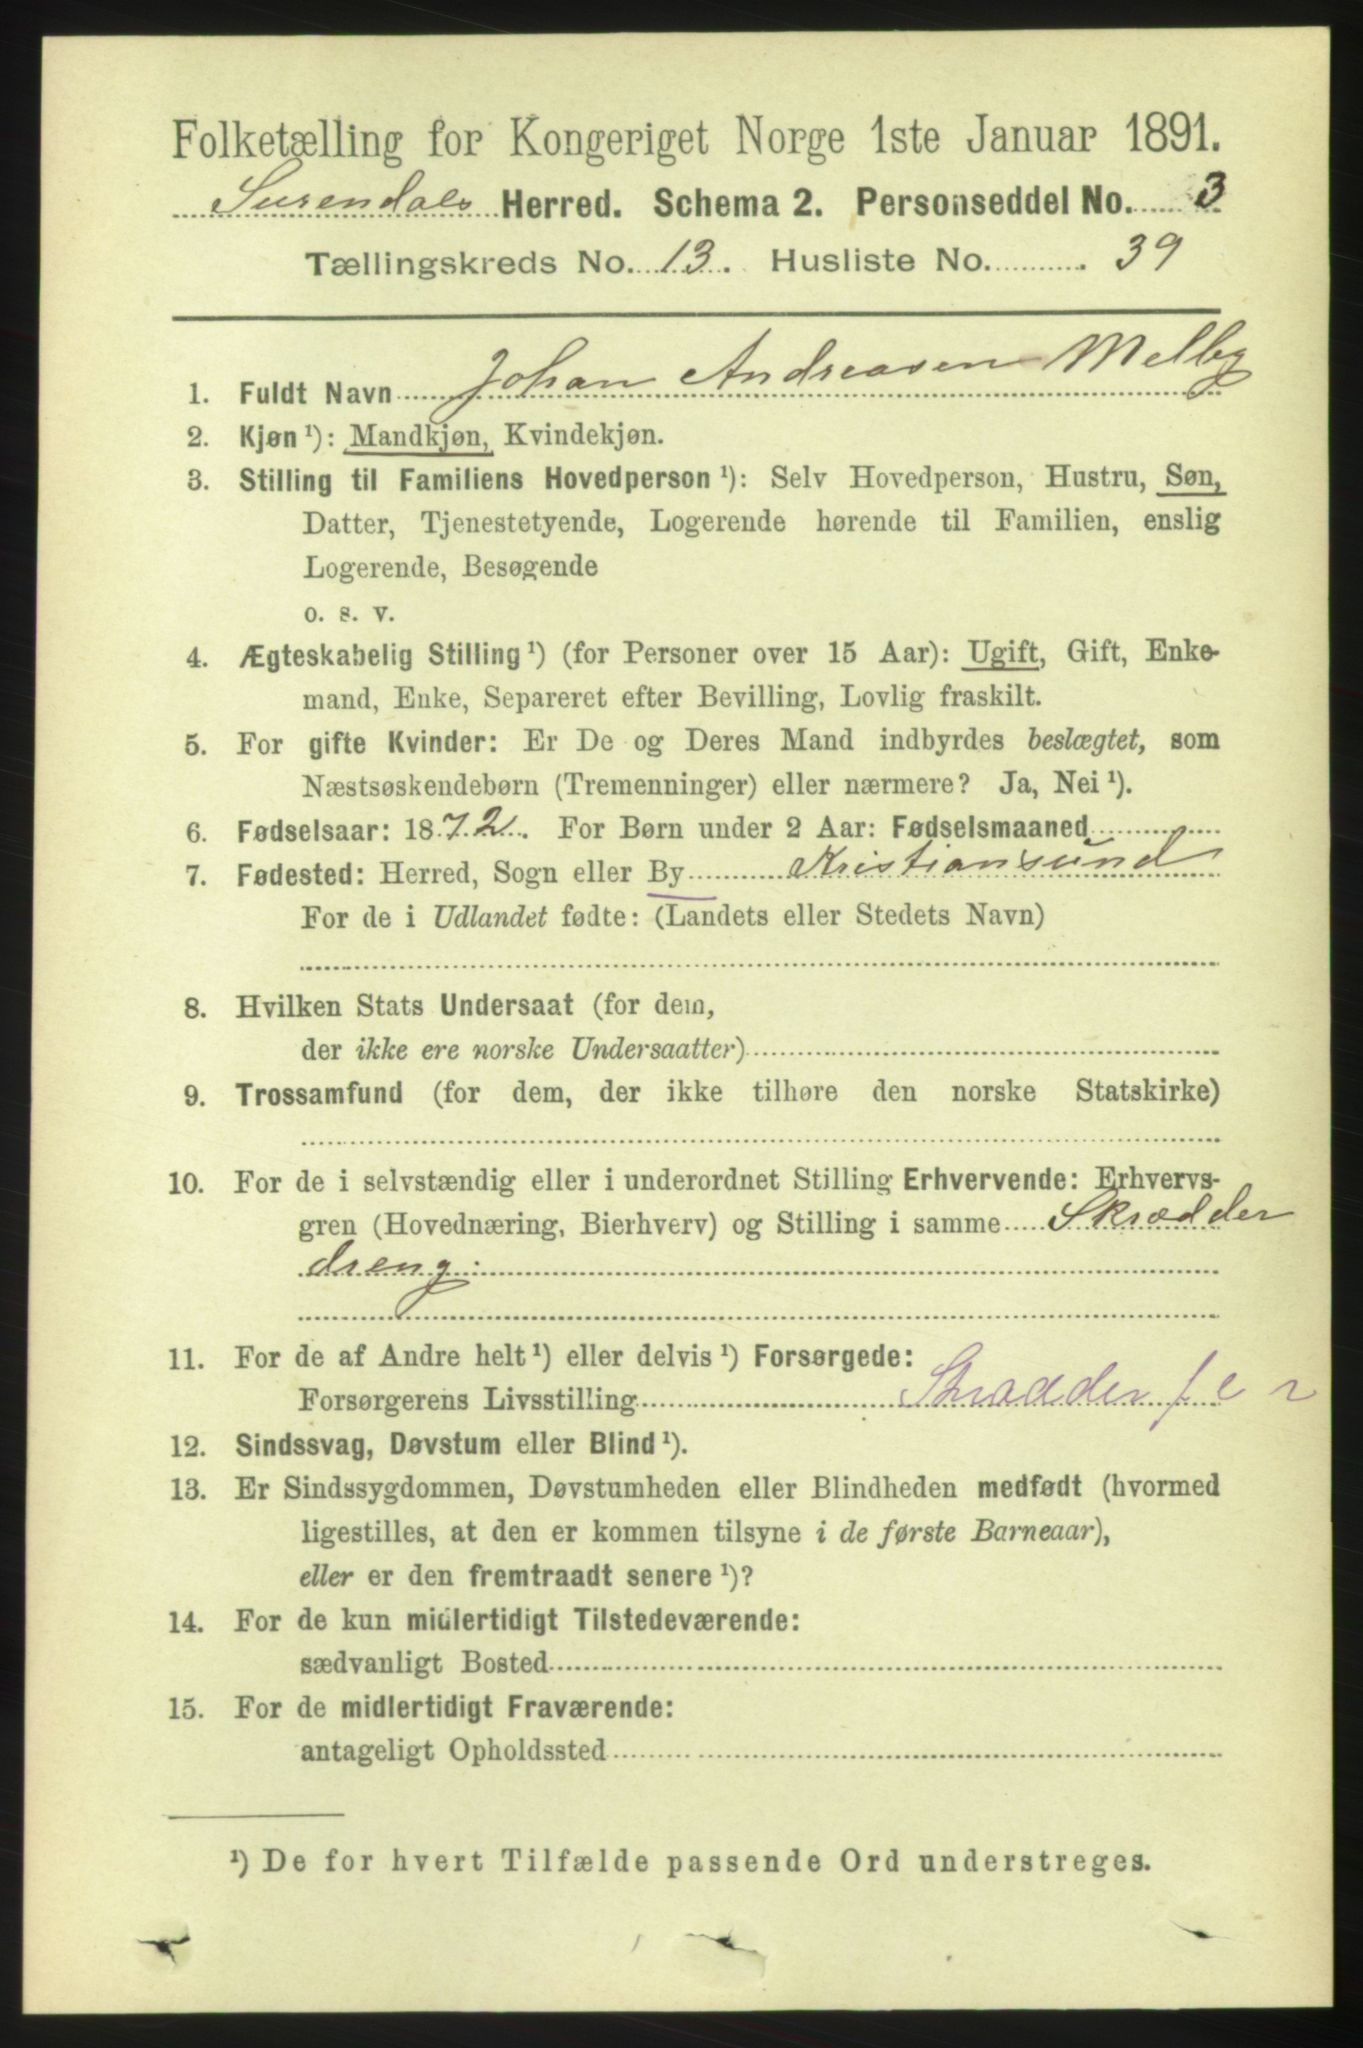 Folketælling for Kongeriget Norge 1ste Januar 1891.
Surendals Herred. Schema 2. Personseddel No. 3
Tællingskreds No. 13. Husliste No. 39
1. Fuldt Navn Johan Andreasen Melby
2. Kjøn ¹): Mandkjøn, Kvindekjøn.
3. Stilling til Familiens Hovedperson ¹): Selv Hovedperson, Hustru, Søn,
Datter, Tjenestetyende, Logerende hørende til Familien, enslig
Logerende, Besøgende
o. s. v.
4. Ægteskabelig Stilling ¹) (for Personer over 15 Aar): Ugift, Gift, Enke-
mand, Enke, Separeret efter Bevilling, Lovlig fraskilt.
5. For gifte Kvinder: Er De og Deres Mand indbyrdes beslægtet, som
Næstsøskendebørn (Tremenninger) eller nærmere? Ja, Nei ¹).
6. Fødselsaar: 1872. For Børn under 2 Aar: Fødselsmaaned
7. Fødested: Herred, Sogn eller By Kristiansund
For de i Udlandet fødte: (Landets eller Stedets Navn)
8. Hvilken Stats Undersaat (for dem,
der ikke ere norske Undersaatter)
9. Trossamfund (for dem, der ikke tilhøre den norske Statskirke)
10. For de i selvstændig eller i underordnet Stilling Erhvervende: Erhvervs-
gren (Hovednæring, Bierhverv) og Stilling i samme Skrædder
dreng.
11. For de af Andre helt ¹) eller delvis ¹) Forsørgede:
Forsørgerens Livsstilling Skrædder f e r
12. Sindssvag, Døvstum eller Blind ¹).
13. Er Sindssygdommen, Døvstumheden eller Blindheden medfødt (hvormed
ligestilles, at den er kommen tilsyne i de første Barneaar),
eller er den fremtraadt senere ¹)?
14. For de kun midlertidigt Tilstedeværende:
sædvanligt Bosted
15. For de midlertidigt Fraværende:
antageligt Opholdssted
¹) De for hvert Tilfælde passende Ord understreges.